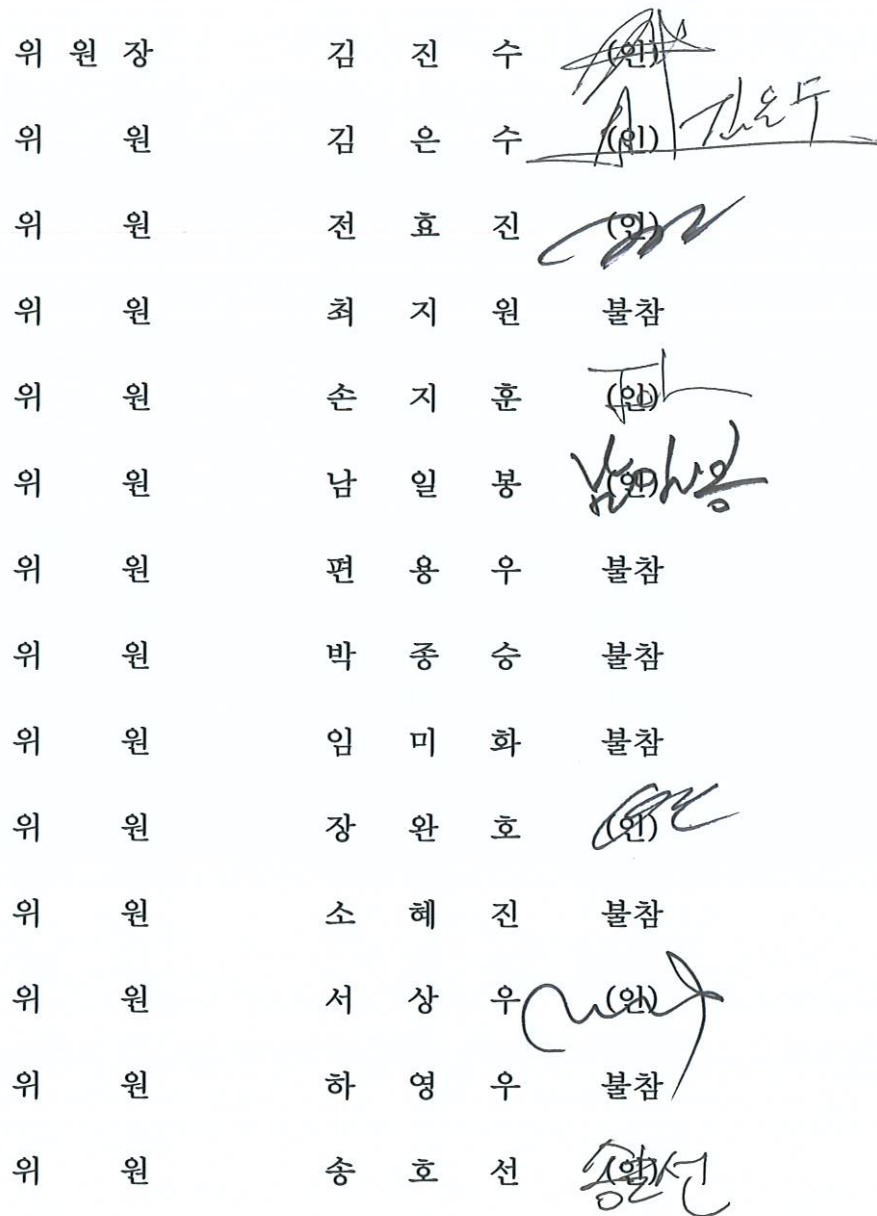 위 원 장 김 진 수 (인)
위 원 김 은 수 (인)
위 원 전 효 진 (인)
위 원 최 지 원 불참
위 원 손 지 훈 (인)
위 원 남 일 봉 (인)
위 원 편 용 우 불참
위 원 박 종 승 불참
위 원 임 미 화 불참
위 원 장 완 호 (인)
위 원 소 혜 진 불참
위 원 서 상 우 (인)
위 원 하 영 우 불참
위 원 송 호 선 (인)